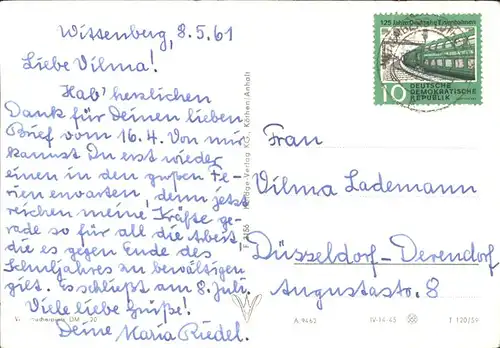 Wittenberg, 8.5.61
Liebe Vilma!
Hab' herzlichen
Dank für Deinen lieben
Brief vom 16.4. Von mir
kannst Du erst wieder
einen in den großen Fe-
rien erwarten, denn jetzt
reichen meine Kräfte ge-
rade so für all die Arbeit,
die es gegen Ende des
Schuljahres zu bewältigen
gilt. Es schließt am 8. Juli.
Viele liebe Grüße!
Deine Maria Riedel.
Verlag KG., Köthen/Anhalt
125 Jahre Deutsche Eisenbahnen
10
DEUTSCHE
DEMOKRATISCHE
REPUBLIK
Frau
Vilma Lademann
Düsseldorf-Derendorf
Augustastr. 8
A 9462
IV-14-45
T 120/59